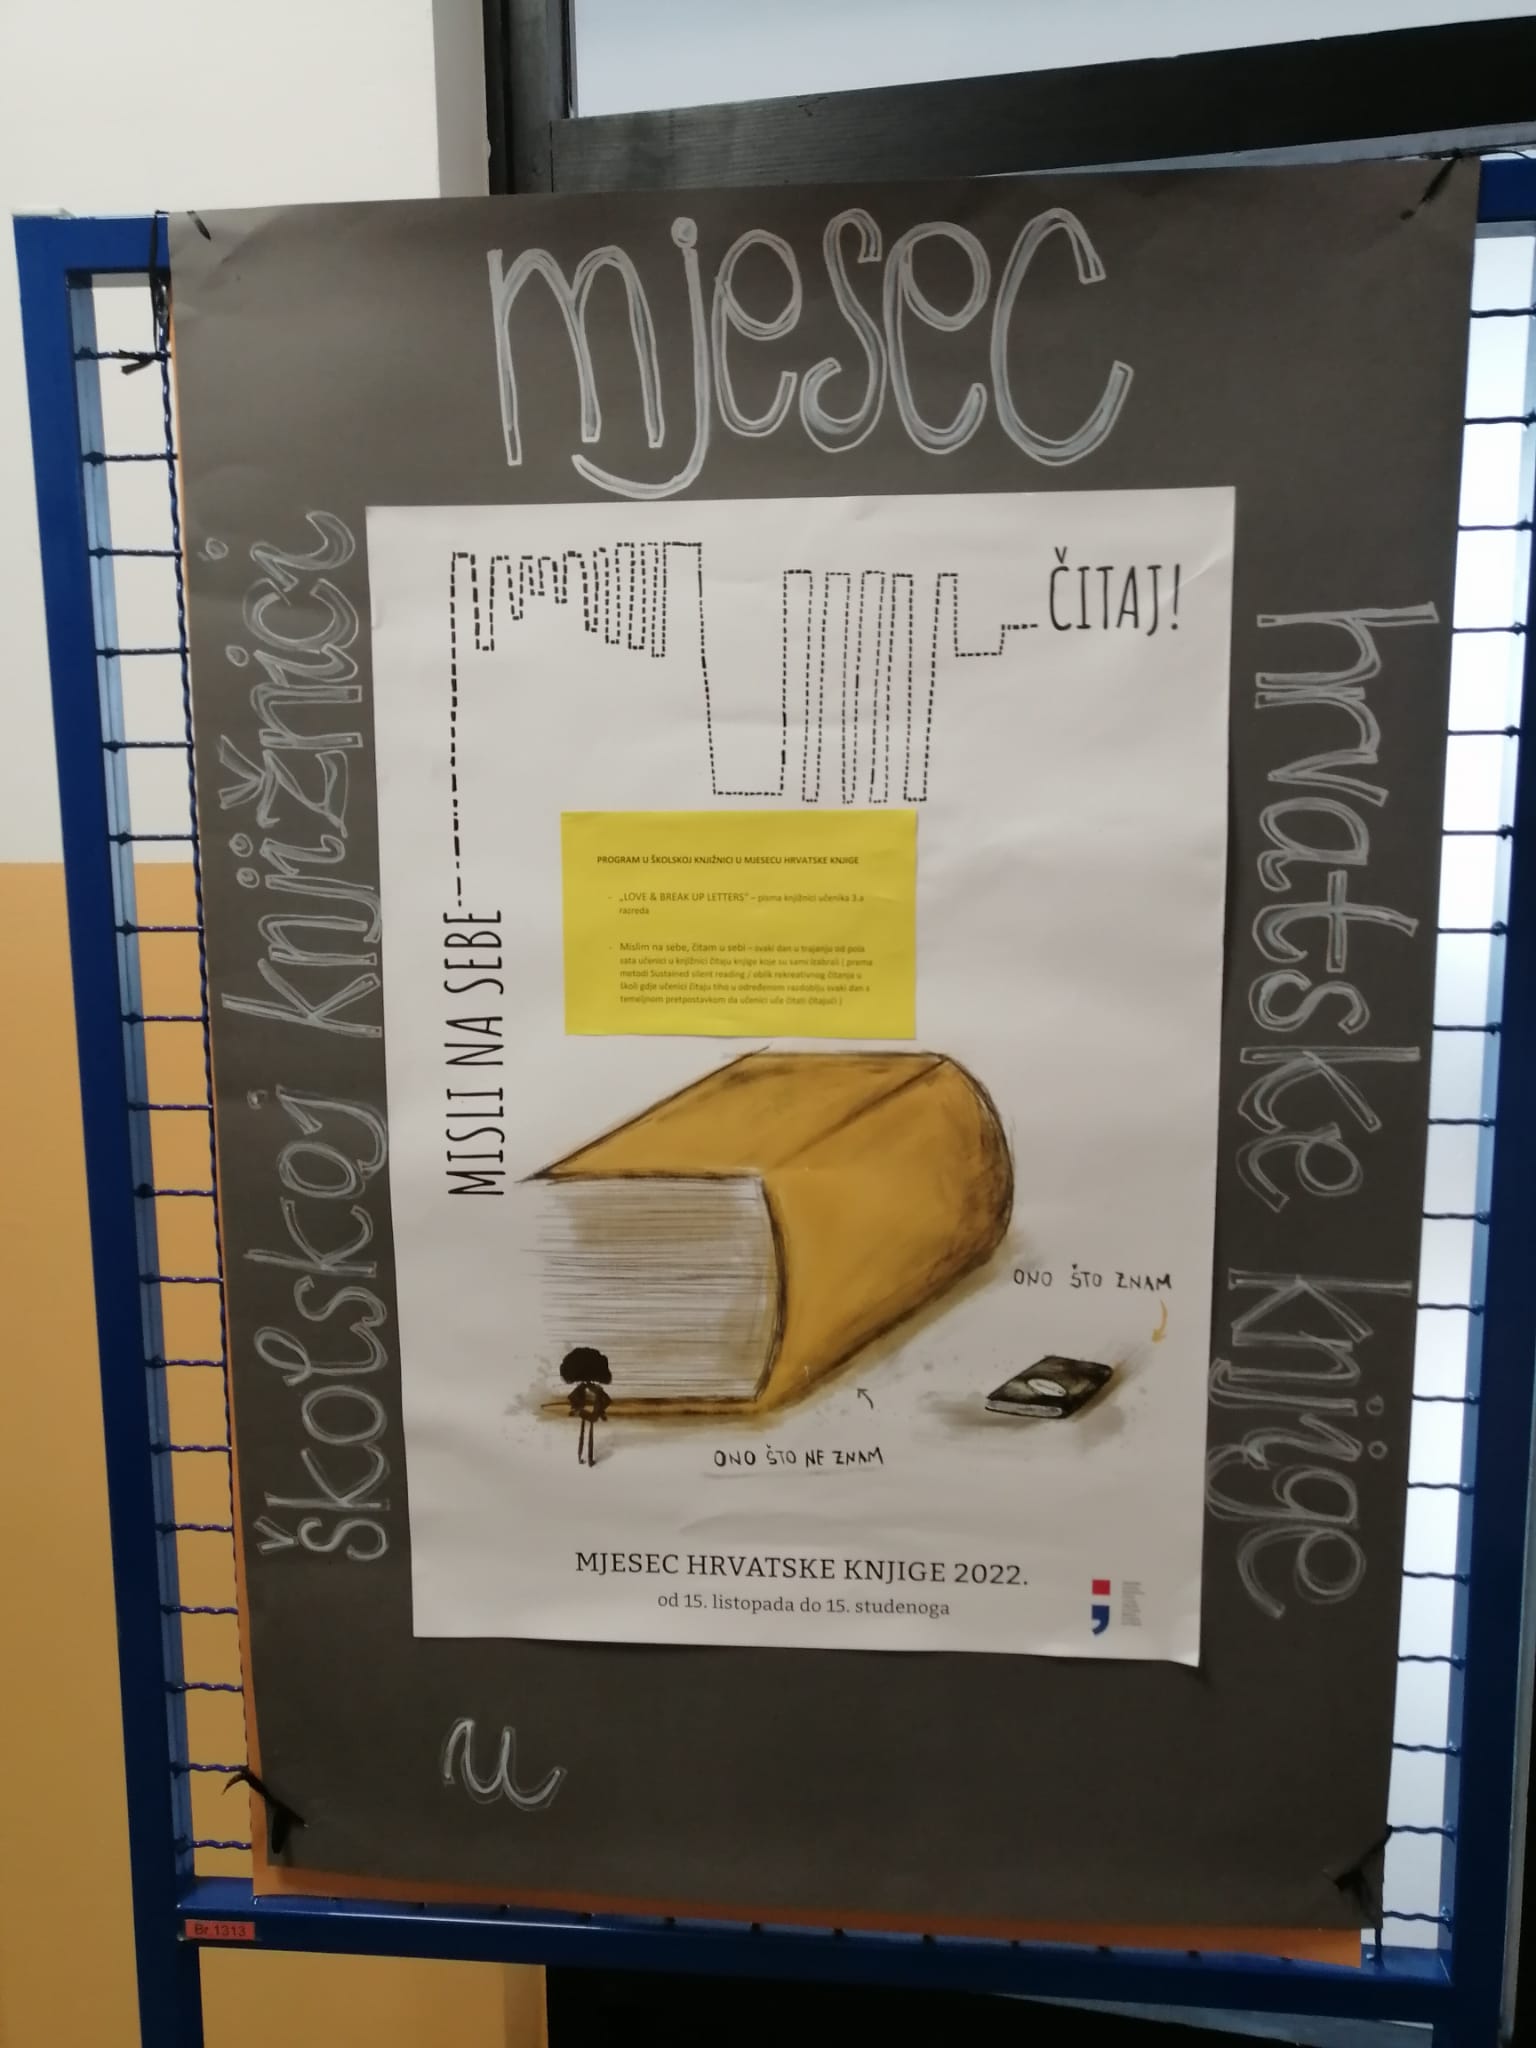 mjesec
hrvatske knjige
u
školskoj knjižnici
MISLI NA SEBE
ČITAJ!
PROGRAM U ŠKOLSKOJ KNJIŽNICI U MJESECU HRVATSKE KNJIGE
- „LOVE & BREAK UP LETTERS" – pisma knjižnici učenika 3.a
razreda
- Mislim na sebe, čitam u sebi – svaki dan u trajanju od pola
sata učenici u knjižnici čitaju knjige koje su sami izabrali ( prema
metodi Sustained silent reading / oblik rekreativnog čitanja u
školi gdje učenici čitaju tiho u određenom razdoblju svaki dan s
temeljnom pretpostavkom da učenici uče čitati čitajući )
ONO ŠTO ZNAM
ONO ŠTO NE ZNAM
MJESEC HRVATSKE KNJIGE 2022.
od 15. listopada do 15. studenoga
Br.1313